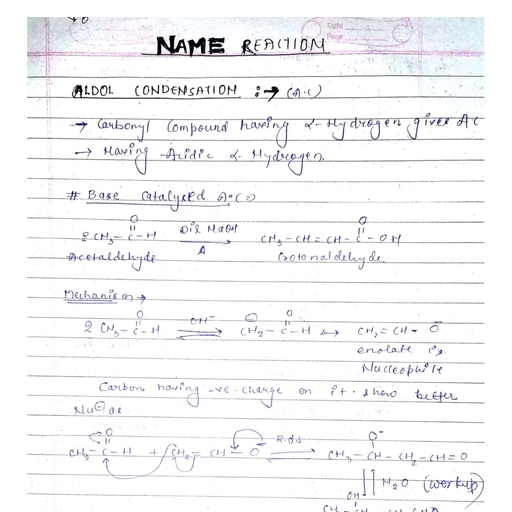 NAME REACTION
ALDOL CONDENSATION :→ (A.C)
→ Carbonyl Compound having α-Hydrogen gives AC
→ Having Acidic α-Hydrogen.
# Base Catalysed A.C
O
2 CH₃-C-H Dil NaOH Δ CH₃-CH=CH-C-OH
Acetaldehyde Crotonaldehyde
Mechanism →
2 CH₃-C-H OH⁻ ⇌ CH₂-C-H ↔ CH₂=CH-O⁻
enolate is
Nucleophile
Carbon having -ve charge on it show better
Nu⊖
CH₃-C-H + CH₂=CH-O⁻ R.d.s CH₃-CH-CH₂-CH=O
H₂O (workup)
OH